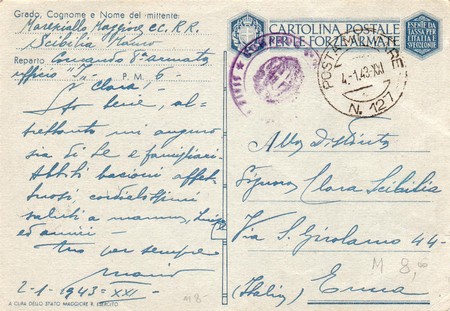 Grado, Cognome e Nome del mittente:
Maresciallo Maggiore CC. R. R.
Scibilia Mario
Reparto Comando 8ª armata
ufficio "
P. M. 6
Clara!
Sto bene, al-
trettanto mi auguro
sia di te e famiglia.
Abbiti bacioni affet-
tuosi cordialissimi
saluti a mamma,
ed
tuo per sempre
Mario
2-1-1943=XXI=
A CURA DELLO STATO MAGGIORE R. ESERCITO
CARTOLINA POSTALE
PER LE FORZE ARMATE
ESENTE DA
TASSA PER
L'ITALIA E
POSTA MILITARE
4-1-43-XXI
N. 127
Alla Distinta
Signora Clara Scibilia
Via S. Girolamo 44-
(Italia) Enna
M 8,00
M8